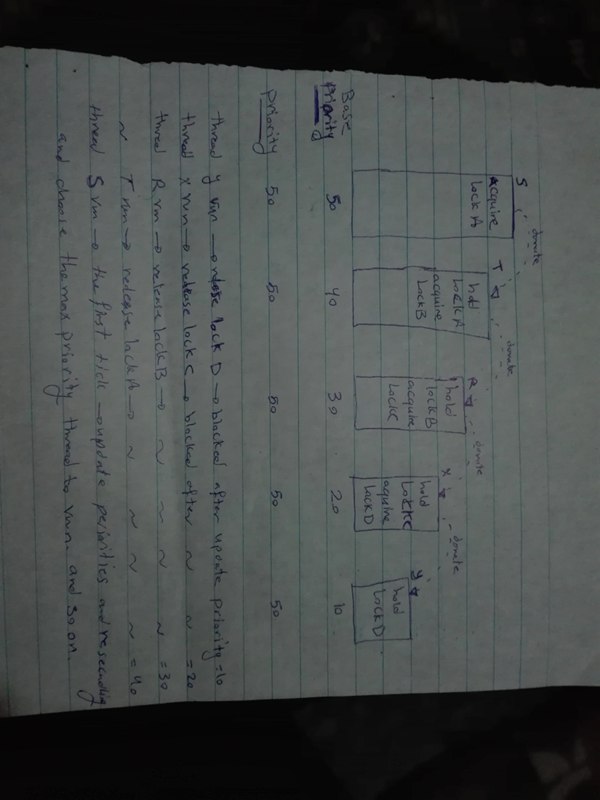 donate donate donate donate
S T R X Y
acquire lock A
hold lock A acquire Lock B
hold lock B acquire Lock C
hold Lock C aquire Lock D
hold Lock D
Base Priority 50 40 30 20 10
Priority 50 50 50 50 50
thread y run → relese lock D → blocked after update priority = 10
thread X run → release lock C → blocked after ~ ~ = 20
thread R run → release lock B → ~ ~ ~ ~ = 30
~ T run → release lock A → ~ ~ ~ ~ = 40
thread S run → the first tick → update periorities and
and choose the max priority thread to run and so on.